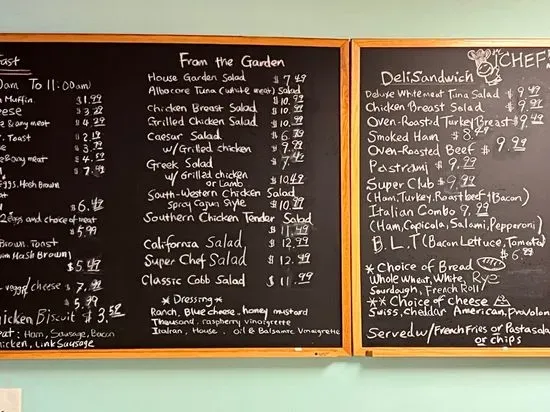 fast
am To 11:00am)
n Muffin. $1.99
eese $3.29
e & any meat $4.29
t. Toast $2.19
se $3.79
e & any meat $4.59
$7.49
Eggs, Hash Brown
$6.49
2 Eggs and choice of meat
$5.99
Brown. Toast
with Hash Brown)
$5.49
veggi/cheese $7.99
$5.99
hicken Biscuit $3.50
eat: Ham, Sausage, Bacon
hicken, Link Sausage
From the Garden
House Garden Salad $7.49
Albacore Tuna (white meat) Salad
$10.99
Chicken Breast Salad $10.99
Grilled Chicken Salad $10.99
Caesar Salad $6.79
w/Grilled chicken $9.99
Greek Salad $7.49
w/Grilled chicken
or Lamb $10.49
South-Western Chicken Salad
Spicy Cajun Style $10.99
Southern Chicken Tender Salad
$11.49
California Salad $12.99
Super Chef Salad $12.49
Classic Cobb Salad $11.99
*Dressing*
Ranch, Blue cheese, honey mustard
Thousand, raspberry vinaigrette
Italian, House, oil & Balsamic Vinaigrette
CHEF'
Deli Sandwich
Deluxe White meat Tuna Salad $9.49
Chicken Breast Salad $9.49
Oven-Roasted Turkey Breast $9.49
Smoked Ham $8.49
Oven-Roasted Beef $9.99
Pastrami $9.99
Super Club $9.99
(Ham, Turkey, Roast beef & Bacon)
Italian Combo 9.99
(Ham, Capicola, Salami, Pepperoni)
B.L.T (Bacon Lettuce, Tomato)
$6.99
*Choice of Bread
Whole Wheat, White, Rye
Sourdough, French Roll
**Choice of cheese
Swiss, cheddar American, Provolon
Served w/French Fries or Pasta sala
or chips